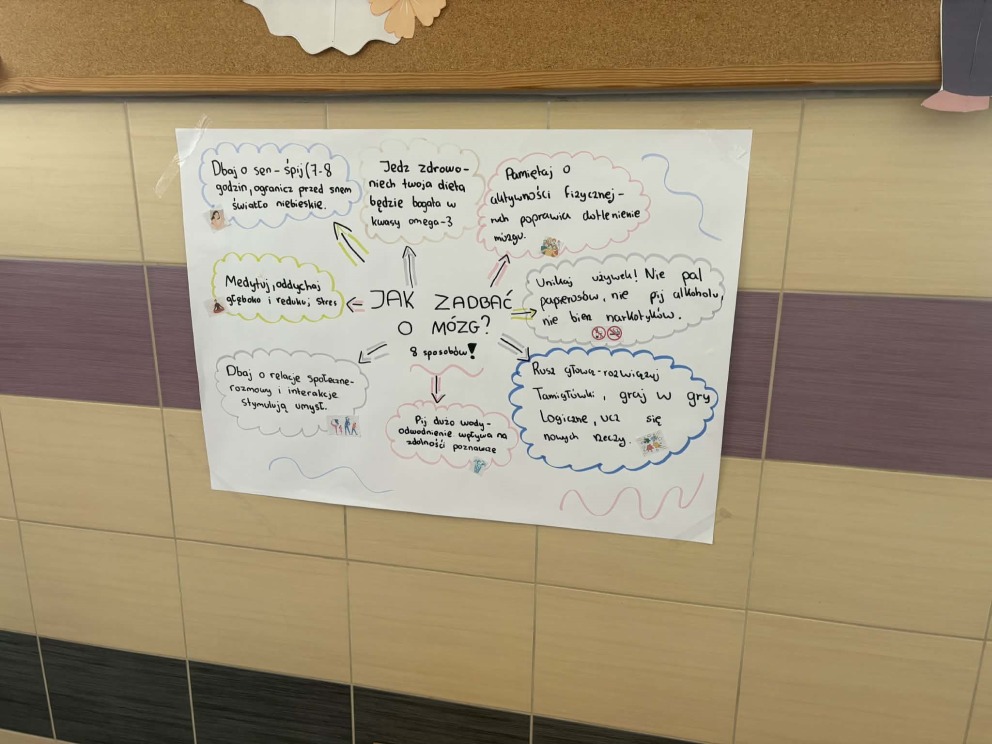 Dbaj o sen - śpij (7-8
godzin, ogranicz przed snem
światło niebieskie.
Jedz zdrowo-
niech twoja dieta
będzie bogata w
kwasy omega-3
Pamiętaj o
aktywności fizycznej-
ruch poprawia dotlenienie
mózgu.
Medytuj, oddychaj
głęboko i redukuj stres
JAK ZADBAĆ
O MÓZG?
8 sposobów!
Unikaj używek! Nie pal
papierosów, nie pij alkoholu,
nie bierz narkotyków.
Dbaj o relacje społeczne-
rozmowy i interakcje
stymulują umysł.
Pij dużo wody-
odwodnienie wpływa na
zdolności poznawcze
Rusz głową-rozwiązuj
Łamigłówki, graj w gry
logiczne, ucz się
nowych rzeczy.